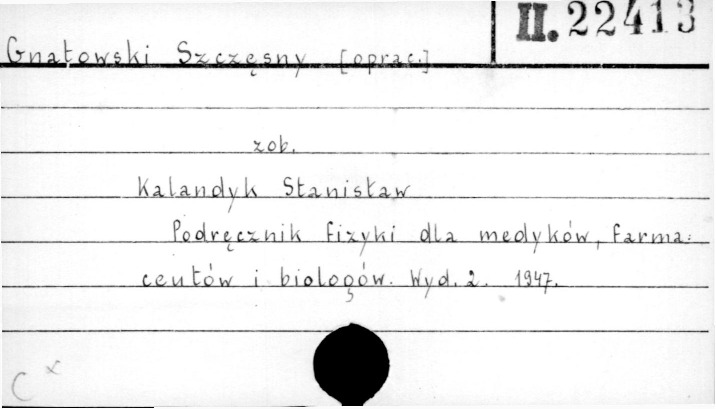 II. 22413
Gnatowski Szczęsny [oprac.]
zob.
Kalandyk Stanisław
Podręcznik fizyki dla medyków, farma=
ceutów i biologów. Wyd. 2. 1947.
C x